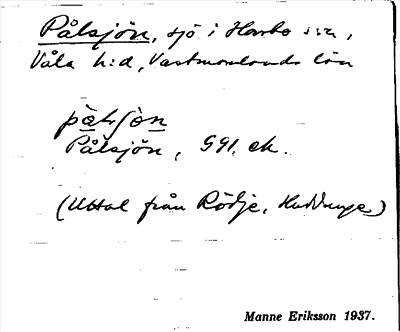 Pålsjön, sjö i Harbo sn,
Våla h:d, Västmanlands län
Pålsjön, GGI, ek.
(Uttal från Rödje, Huddunge)
Manne Eriksson 1937.